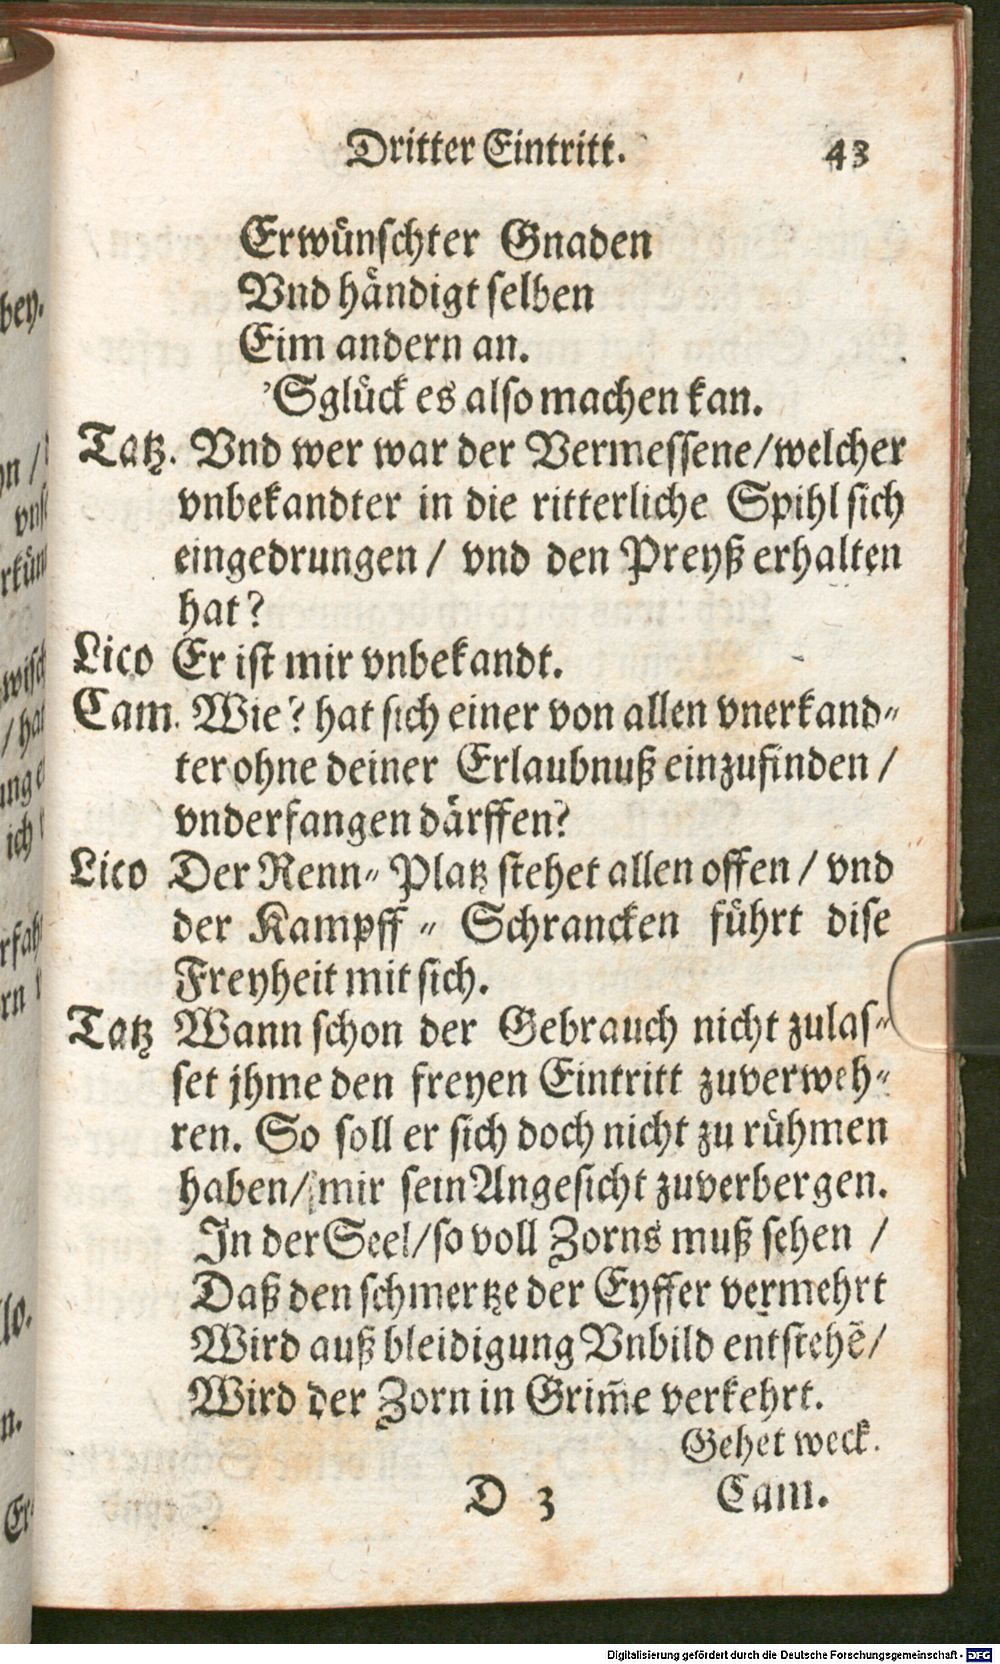 Dritter Eintritt. 43
Erwünschter Gnaden
Vnd händigt selben
Eim andern an.
'Sglück es also machen kan.
Tatz. Vnd wer war der Vermessene/welcher
vnbekandter in die ritterliche Spihl sich
eingedrungen / vnd den Preyß erhalten
hat?
Lico Er ist mir vnbekandt.
Cam. Wie? hat sich einer von allen vnerkand-
ter ohne deiner Erlaubnuß einzufinden /
vnderfangen därffen?
Lico Der Renn-Platz stehet allen offen / vnd
der Kampff-Schrancken führt dise
Freyheit mit sich.
Tatz Wann schon der Gebrauch nicht zulas-
set jhme den freyen Eintritt zuverweh-
ren. So soll er sich doch nicht zu rühmen
haben/ mir sein Angesicht zuverbergen.
In der Seel/so voll Zorns muß sehen /
Daß den schmertze der Eyffer vermehrt
Wird auß bleidigung Vnbild entstehē/
Wird der Zorn in Grim̄e verkehrt.
Gehet weck.
D 3 Cam.
bey.
wisch
/ hat
ich
lo.
n.
Er-
Digitalisierung gefördert durch die Deutsche Forschungsgemeinschaft - DFG